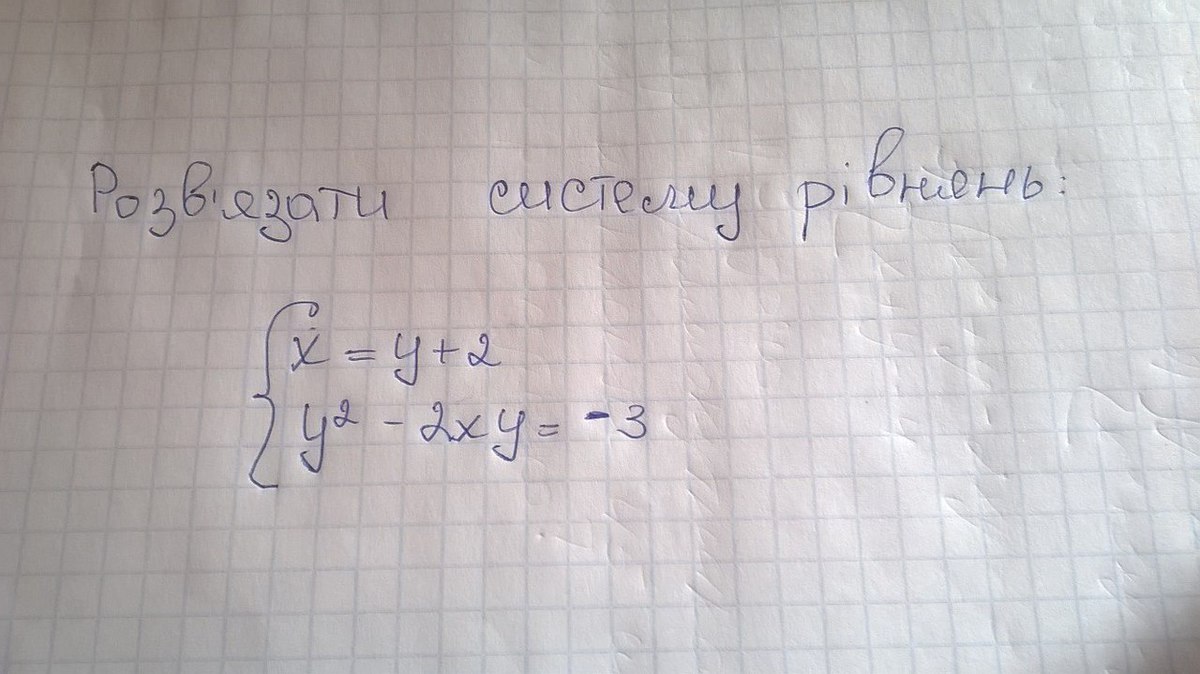 Розв'язати систему рівнень:
x = y + 2
y² - 2xy = -3